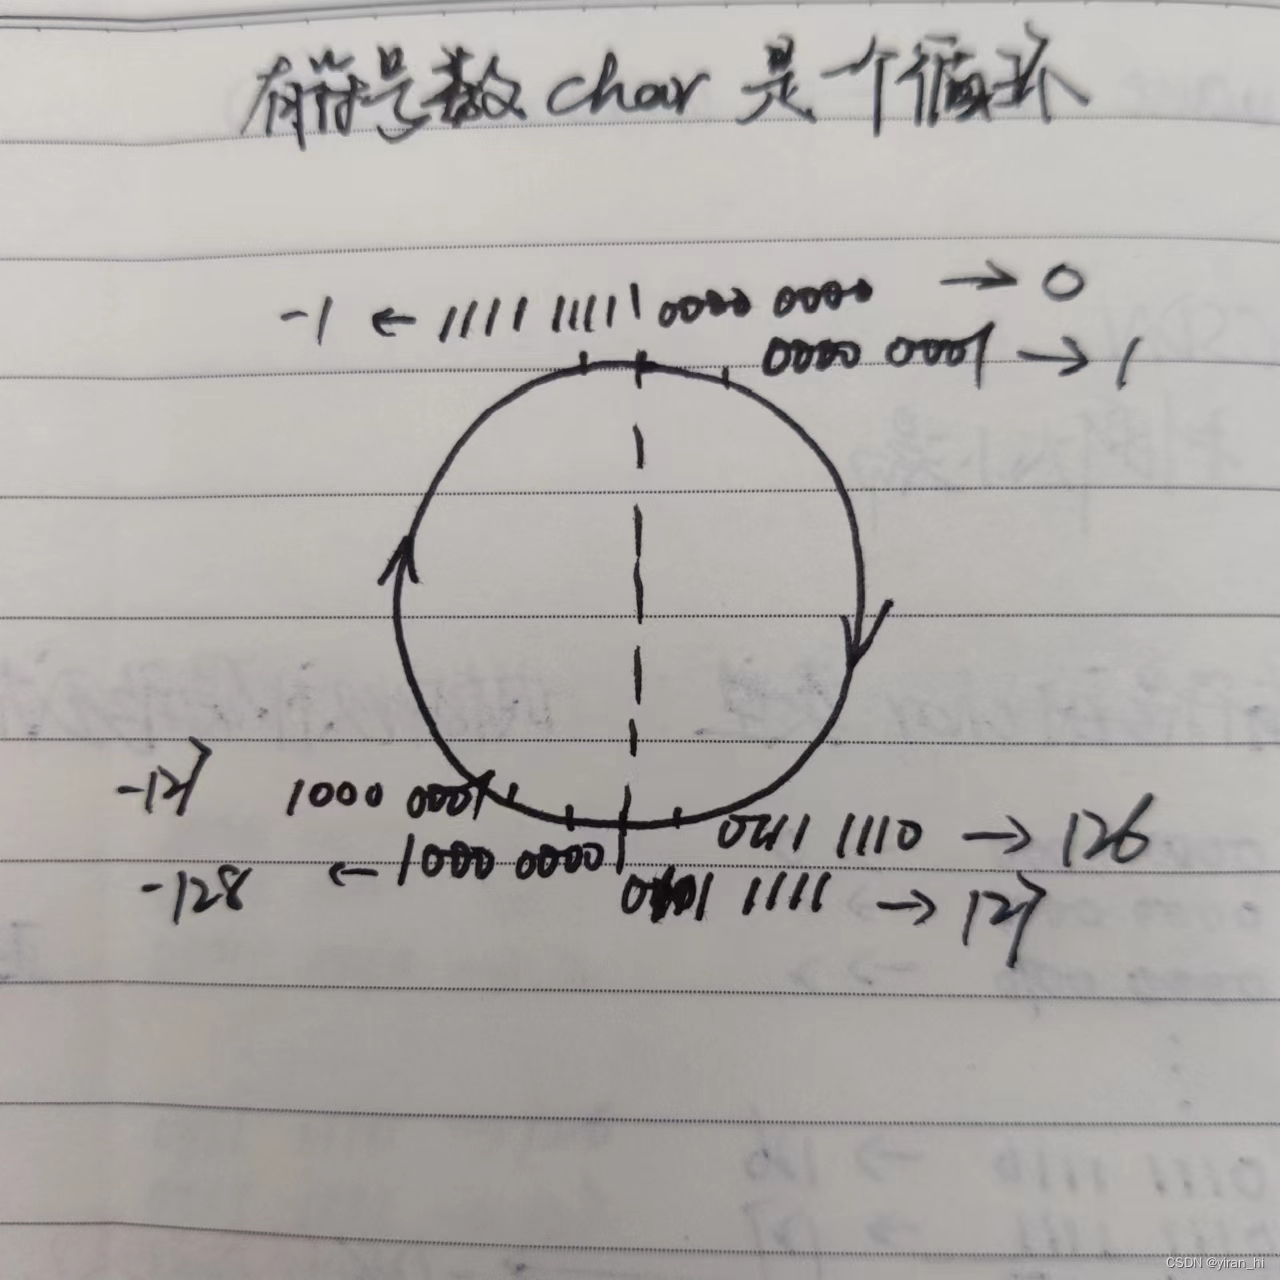 有符号数 char 是一个循环
-1 ← 1111 1111 0000 0000 → 0
0000 0001 → 1
-127 1000 0001
0111 1110 → 126
-128 ← 1000 0000
1111 → 127
CSDN @yiran_hi